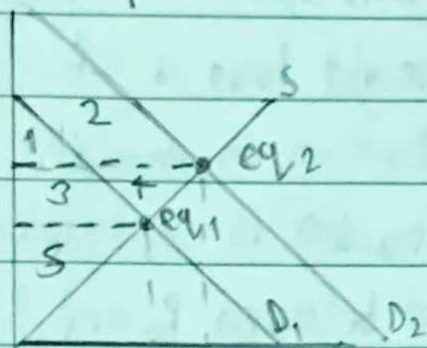 S
2
1
eq2
3
4
eq1
5
D1
D2